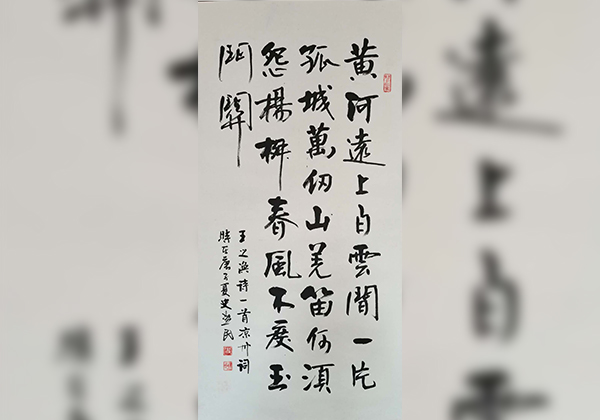 黄河遠上白雲間一片
孤城萬仞山羌笛何須
怨楊柳春風不度玉
門關
王之渙詩一首涼州詞
時在庚子夏史志民